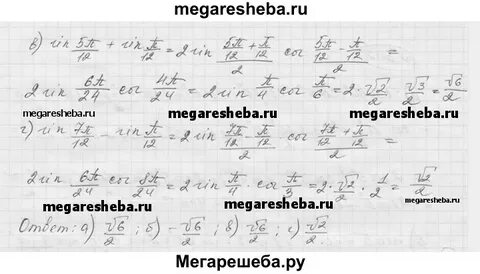 megaresheba.ru
в) sin 5π/12 + sin π/12 = 2 sin (5π/12 + π/12)/2 cos (5π/12 - π/12)/2 =
2 sin 6π/24 cos 4π/24 = 2 sin π/4 cos π/6 = 2 · √2/2 · √3/2 = √6/2
megaresheba.ru megaresheba.ru megaresheba.ru
г) sin 7π/12 - sin π/12 = 2 sin (7π/12 - π/12)/2 · cos (7π/12 + π/12)/2 =
2 sin 6π/24 cos 8π/24 = 2 sin π/4 · cos π/3 = 2 · √2/2 · 1/2 = √2/2
megaresheba.ru megaresheba.ru
Ответ: а) √6/2 ; б) -√6/2 ; в) √6/2 ; г) √2/2
Мегарешеба.ру